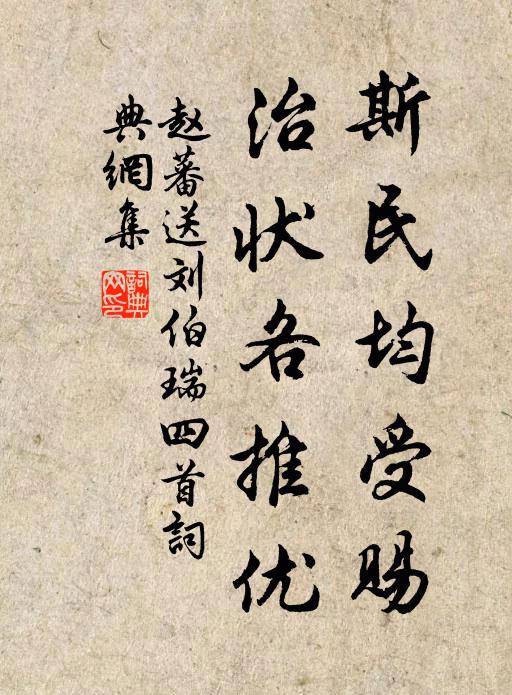 斯民均受赐
治状各推优
赵蕃送刘伯瑞四首词
典網集
詞典网印